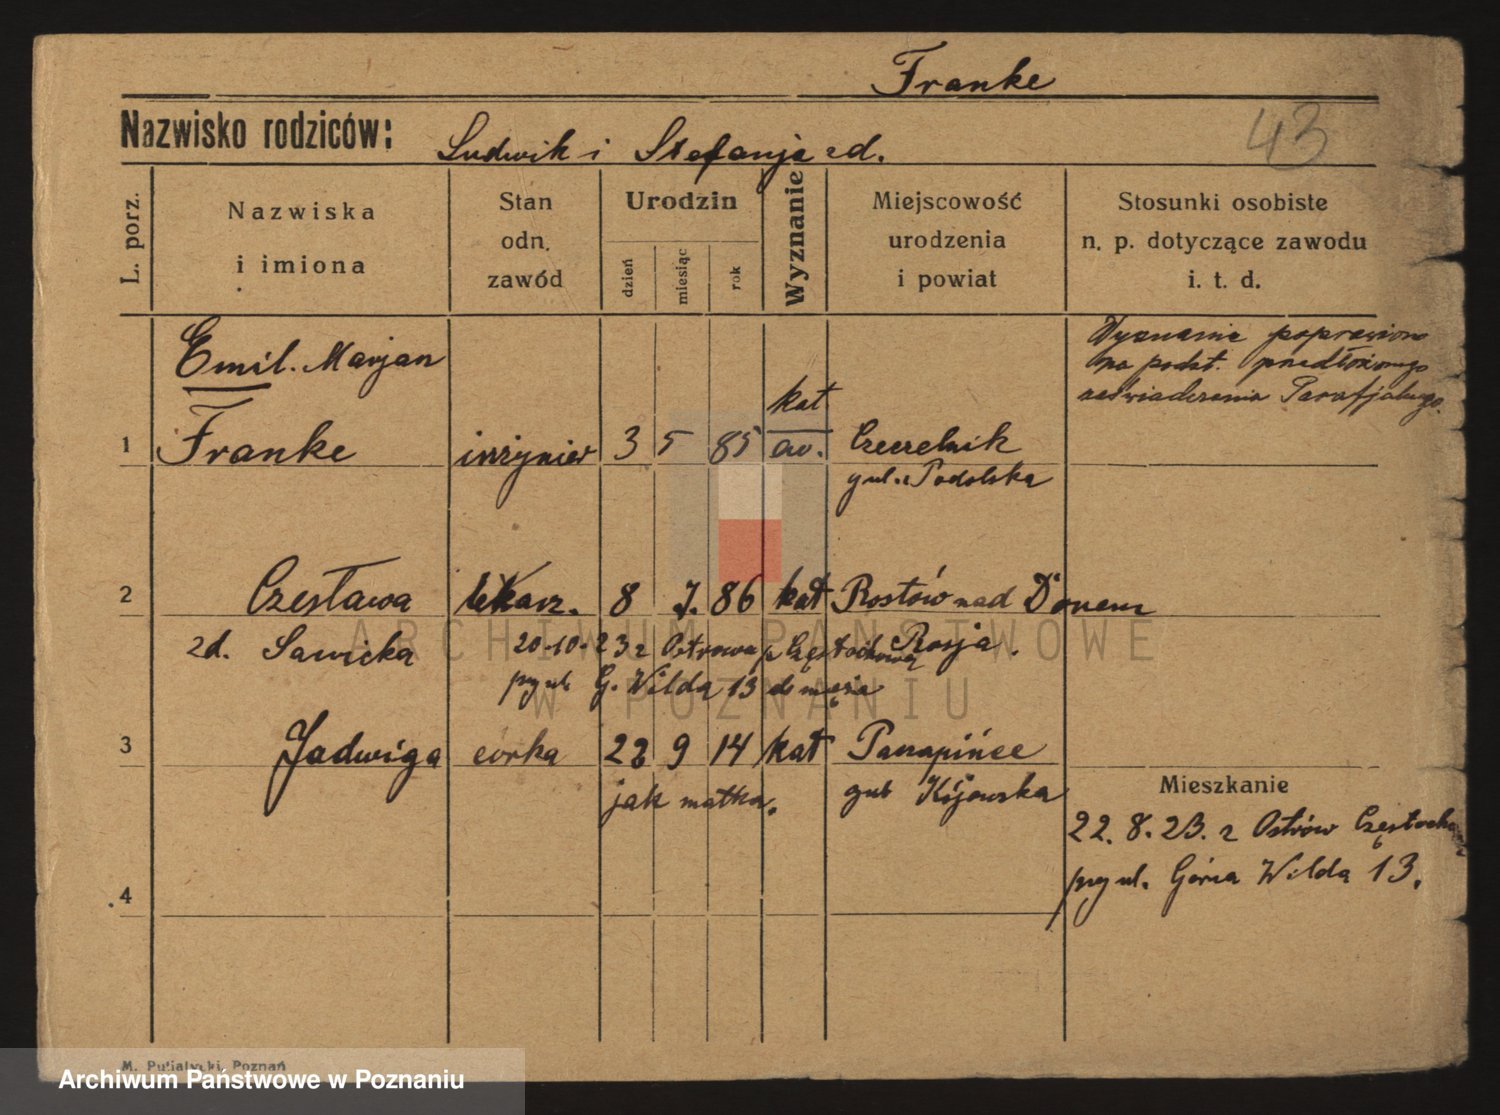 Franke
43
Nazwisko rodziców: Ludwik i Stefanja zd.
L. porz.
Nazwiska
i imiona
Stan
odn.
zawód
Urodzin
dzień
miesiąc
rok
Wyznanie
Miejscowość
urodzenia
i powiat
Stosunki osobiste
n. p. dotyczące zawodu
i. t. d.
Wyznanie poprawiono
na podst. przedłożonego
zaświadczenia Parafjalnego.
Emil. Marjan
kat
1 Franke inżynier 3 5 85 ew. Czeczelnik
gub. Podolska
2 Czesława lekarz. 8 7. 86 kat Rostów nad Donem
zd. Sawicka Rosja.
20.10.23 z Ostrowa p Częstochową
przy ul G. Wilda 13 do męża
3 Jadwiga córka 22 9 14 kat
jak matka.
gub Kijowska
Mieszkanie
22. 8. 23. z Ostrów
przy ul. Górna Wilda 13.
4
M. Putiatycki, Poznań
ARCHIWUM PAŃSTWOWE
W POZNANIU
Archiwum Państwowe w Poznaniu